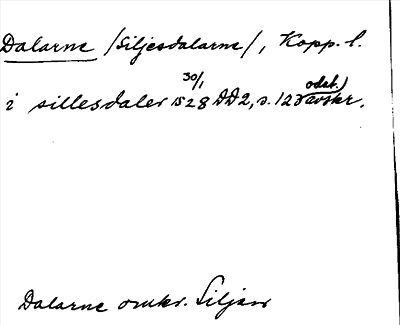 Dalarne /Siljesdalarne/, Kopp. l.
30/1 odat.)
i sillesdaler 1528 DD2, s. 12 avskr.
Dalarne omkr. Siljan